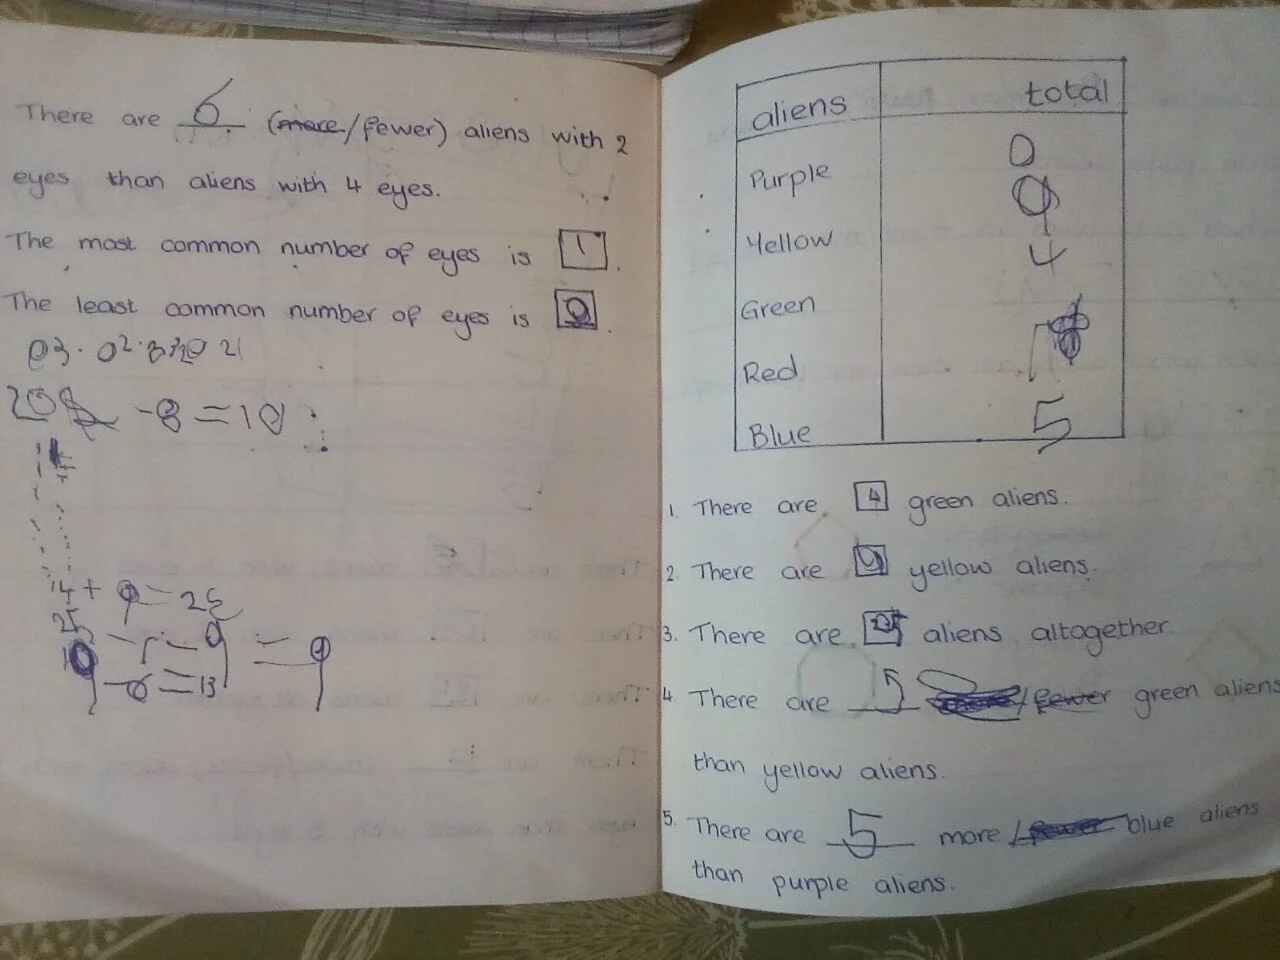 There are 6 (more/fewer) aliens with 2
eyes than aliens with 4 eyes.
The most common number of eyes is 1.
The least common number of eyes is
-8=10
14+9=25
-6=13
aliens total
Purple 0
Yellow 9
Green 4
Red
Blue 5
1. There are 4 green aliens.
2. There are yellow aliens.
3. There are aliens altogether
4. There are 5 /fewer green aliens
than yellow aliens.
5. There are 5 more /fewer blue aliens
than purple aliens.